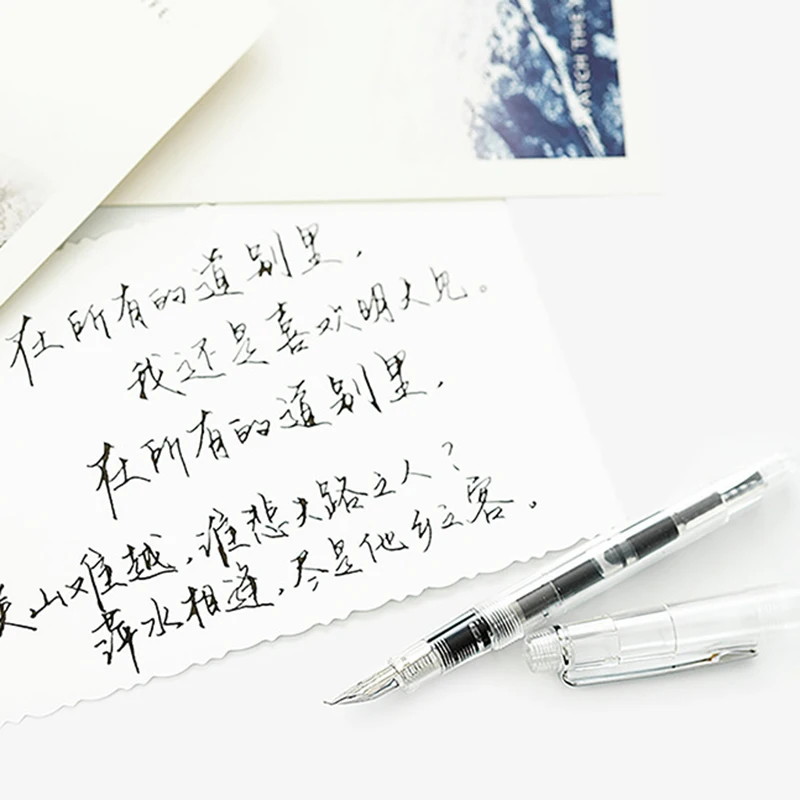 WATCH THE
在所有的道别里，
我还是喜欢明天见。
在所有的道别里，
关山难越，谁悲失路之人？
萍水相逢，尽是他乡之客。